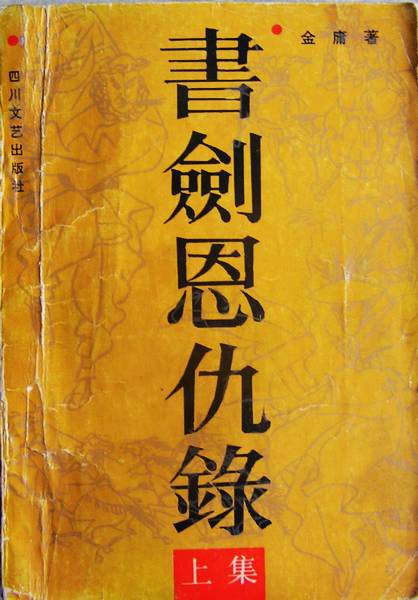 金庸著
書劍恩仇錄
上集
四川文艺出版社